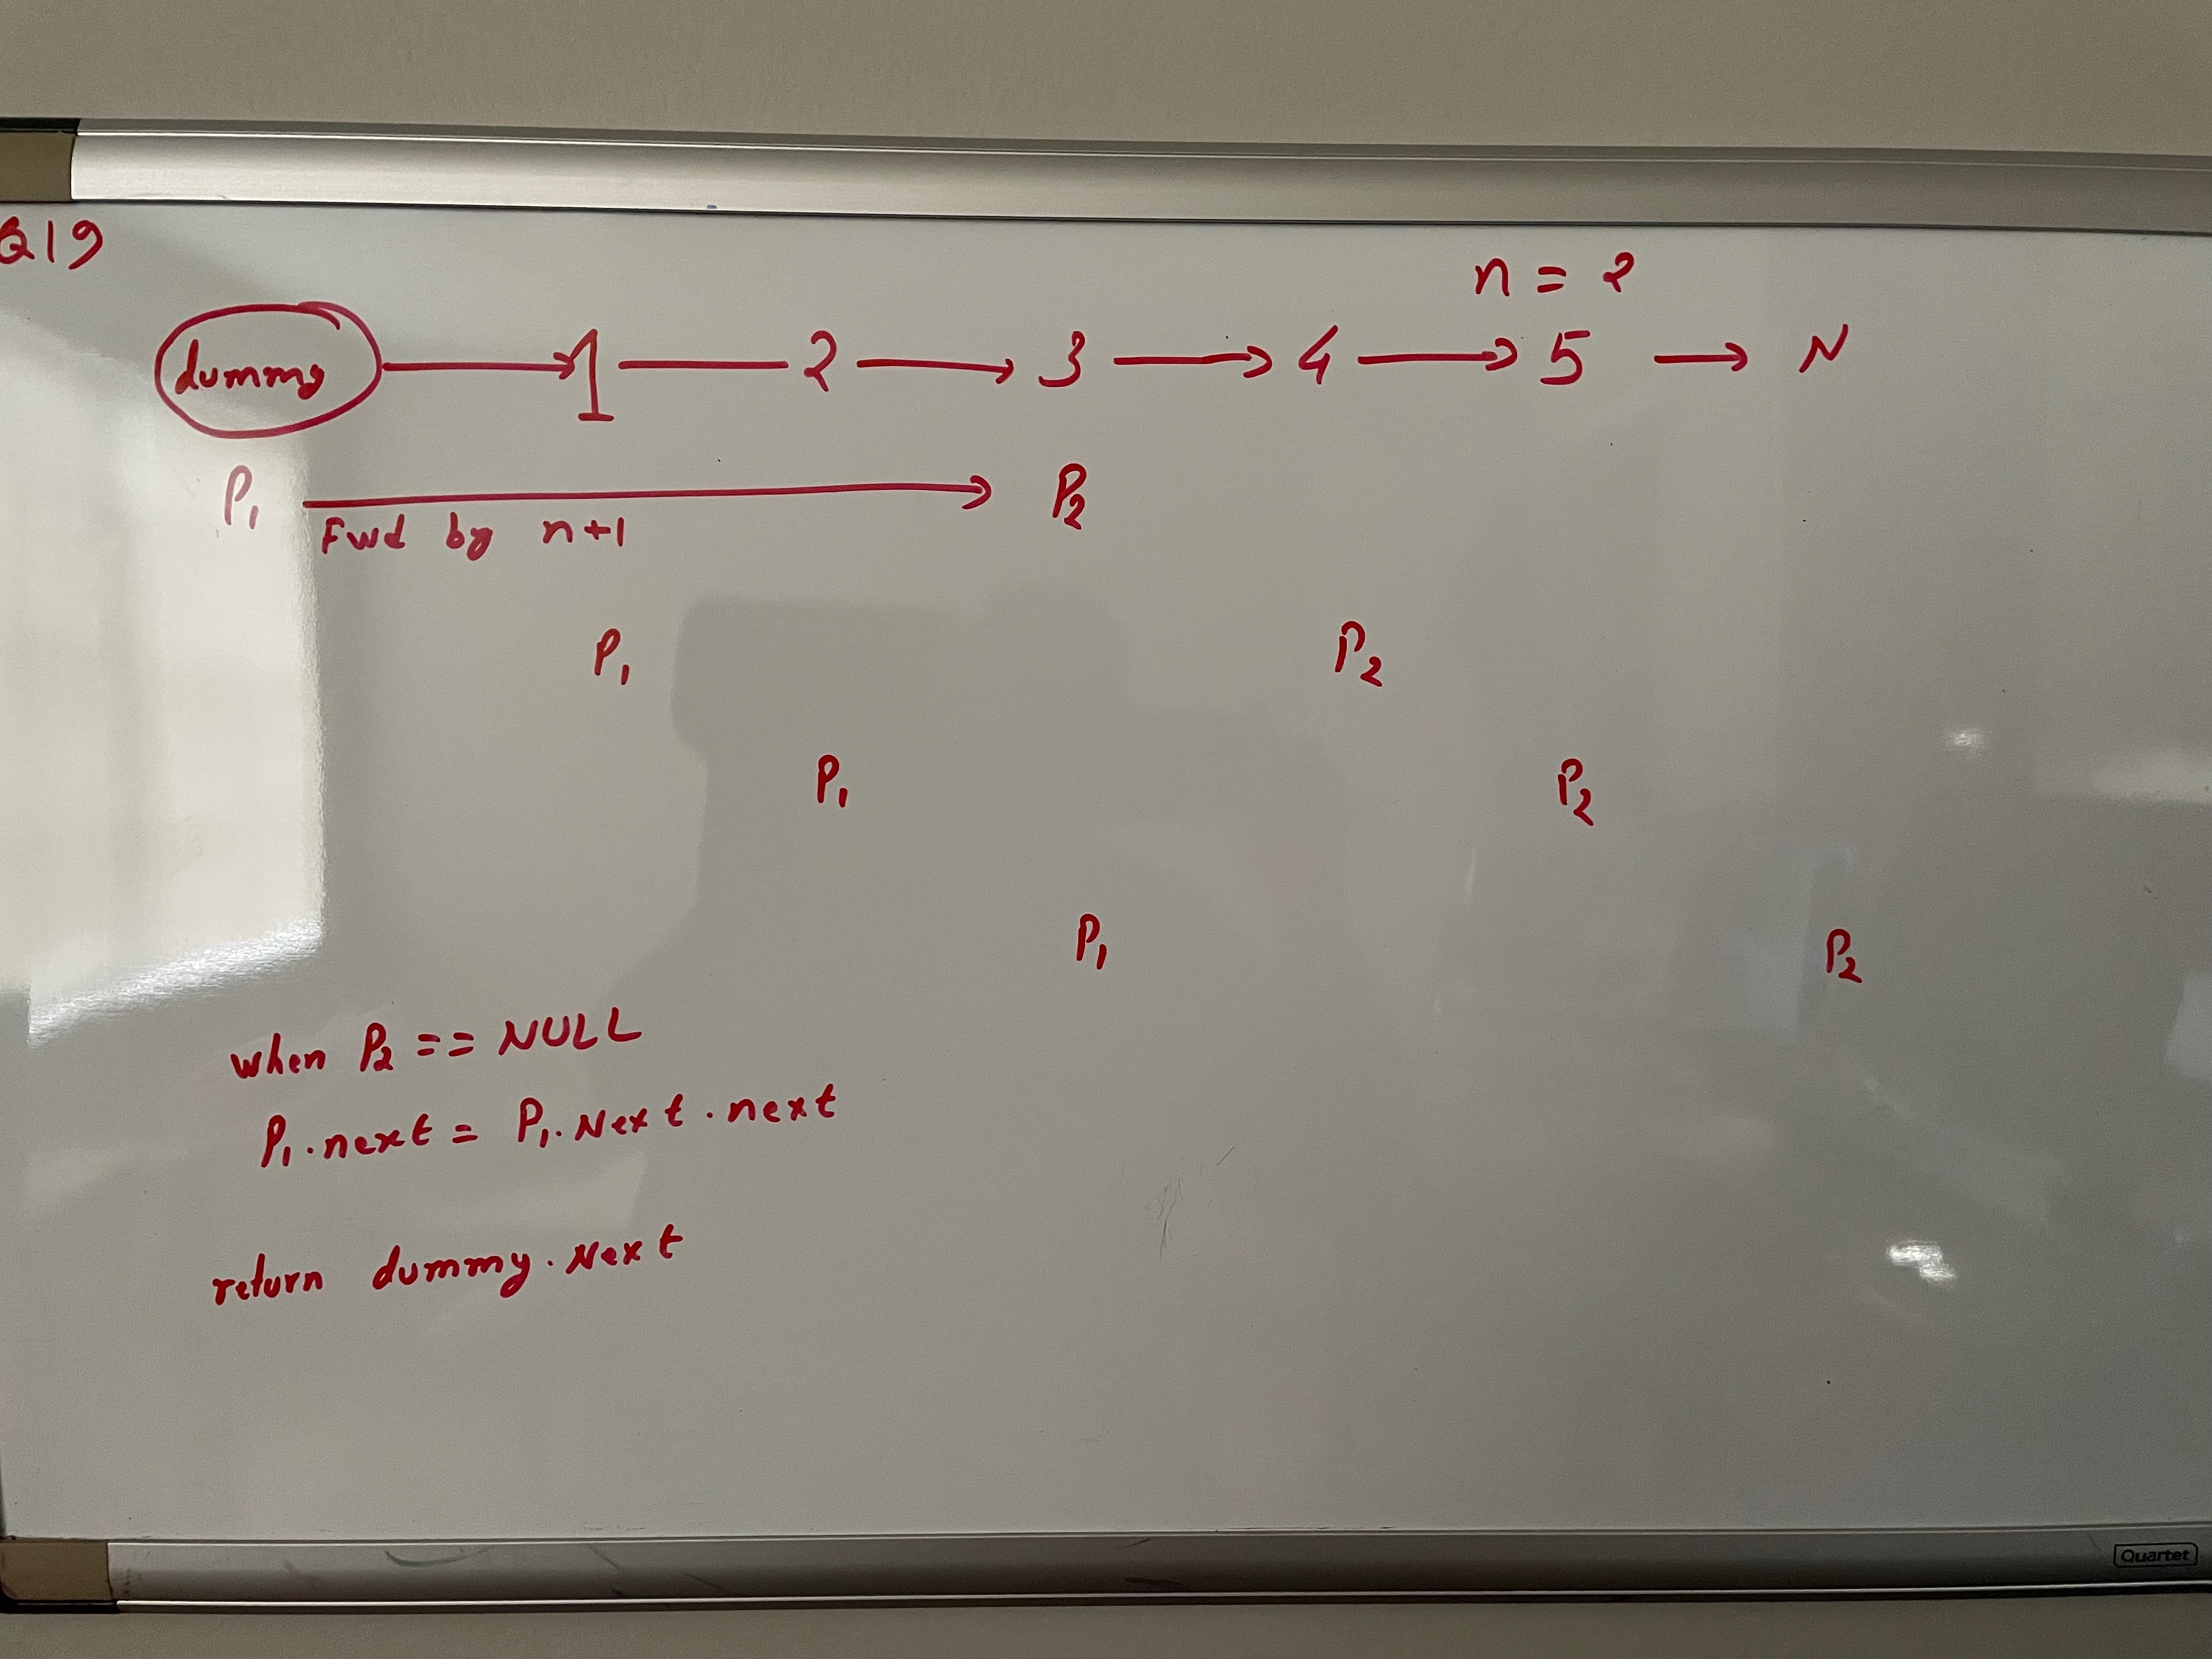 Q19
n = 2
dummy → 1 — 2 → 3 → 4 → 5 → N
P1 → P2
Fwd by n+1
P1 P2
P1 P2
P1 P2
when P2 == NULL
P1.next = P1.Next.next
return dummy.Next
Quartet